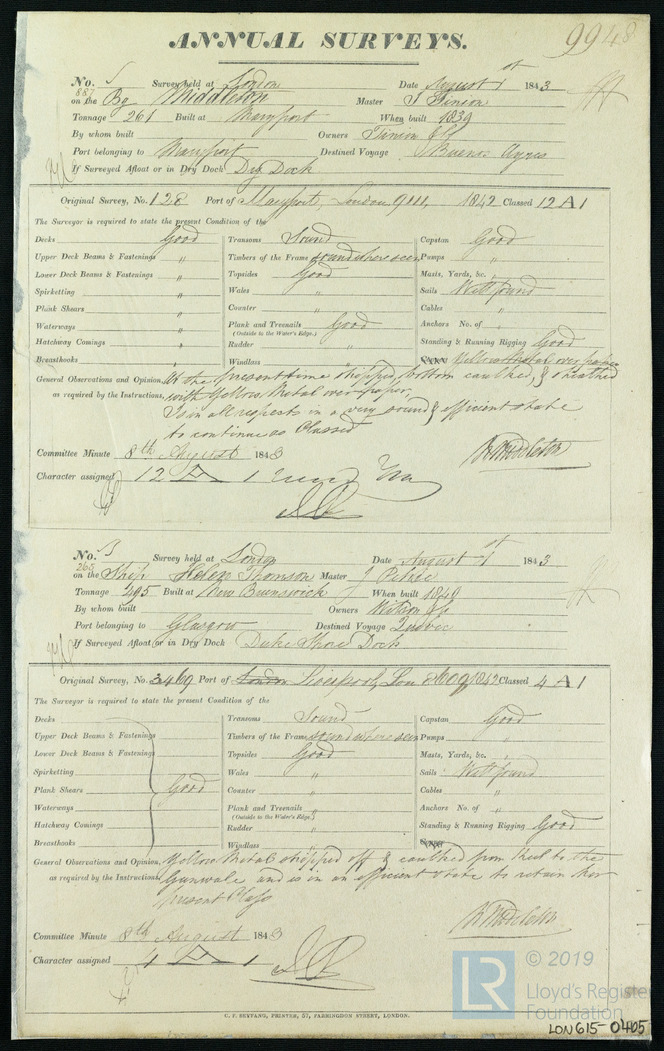 9948
ANNUAL SURVEYS.
No. 5 Survey held at London Date August 1st 1843
887
on the Bg Middleton Master J
Tonnage 261 Built at Maryport When built 1839
By whom built Owners
Port belonging to Maryport Destined Voyage Buenos Ayres
If Surveyed Afloat or in Dry Dock Dry Dock
Original Survey, No. 128 Port of Maryport, London 1842 Classed 12 A 1
The Surveyor is required to state the present Condition of the
Decks Good Transoms Sound Capstan Good
Upper Deck Beams & Fastenings " Timbers of the Frame sound where seen Pumps "
Lower Deck Beams & Fastenings " Topsides Good Masts, Yards, &c. "
Spirketting " Wales " Sails Well found
Plank Shears " Counter " Cables "
Waterways " Plank and Treenails Good Anchors No. of "
(Outside to the Water's Edge.)
Hatchway Comings " Rudder " Standing & Running Rigging Good
Breasthooks " Windlass " Yellow Metal over paper
General Observations and Opinion, At the present time stripped, bottom caulked, & sheathed
as required by the Instructions, with Yellow Metal over paper,
Is in all respects in a very sound & efficient state
to continue as Classed
Committee Minute 8th August 1843 Middleton
Character assigned 12 A 1
No. 3 Survey held at London Date August 1st 1843
265
on the Ship Helen Thomson Master J
Tonnage 495 Built at New Brunswick When built 1840
By whom built Owners
Port belonging to Glasgow Destined Voyage Quebec
If Surveyed Afloat or in Dry Dock Duke Shore Dock
Original Survey, No. 3469 Port of London Liverpool, Lon 1842 Classed 4 A 1
The Surveyor is required to state the present Condition of the
Decks Transoms Sound Capstan Good
Upper Deck Beams & Fastenings Timbers of the Frame sound where seen Pumps "
Lower Deck Beams & Fastenings Topsides Good Masts, Yards, &c. "
Spirketting Wales " Sails Well found
Plank Shears Good Counter " Cables "
Waterways Plank and Treenails " Anchors No. of "
(Outside to the Water's Edge.)
Hatchway Comings Rudder " Standing & Running Rigging Good
Breasthooks Windlass
General Observations and Opinion, Yellow Metal stripped off & caulked from keel to the
as required by the Instructions, Gunwale and is in an efficient state to retain her
present Class
Committee Minute 8th August 1843 Middleton
Character assigned 4 A 1
C. F. SEYFANG, PRINTER, 57, FARRINGDON STREET, LONDON.
LR © 2019
Lloyd's Register
Foundation
LON615-0405